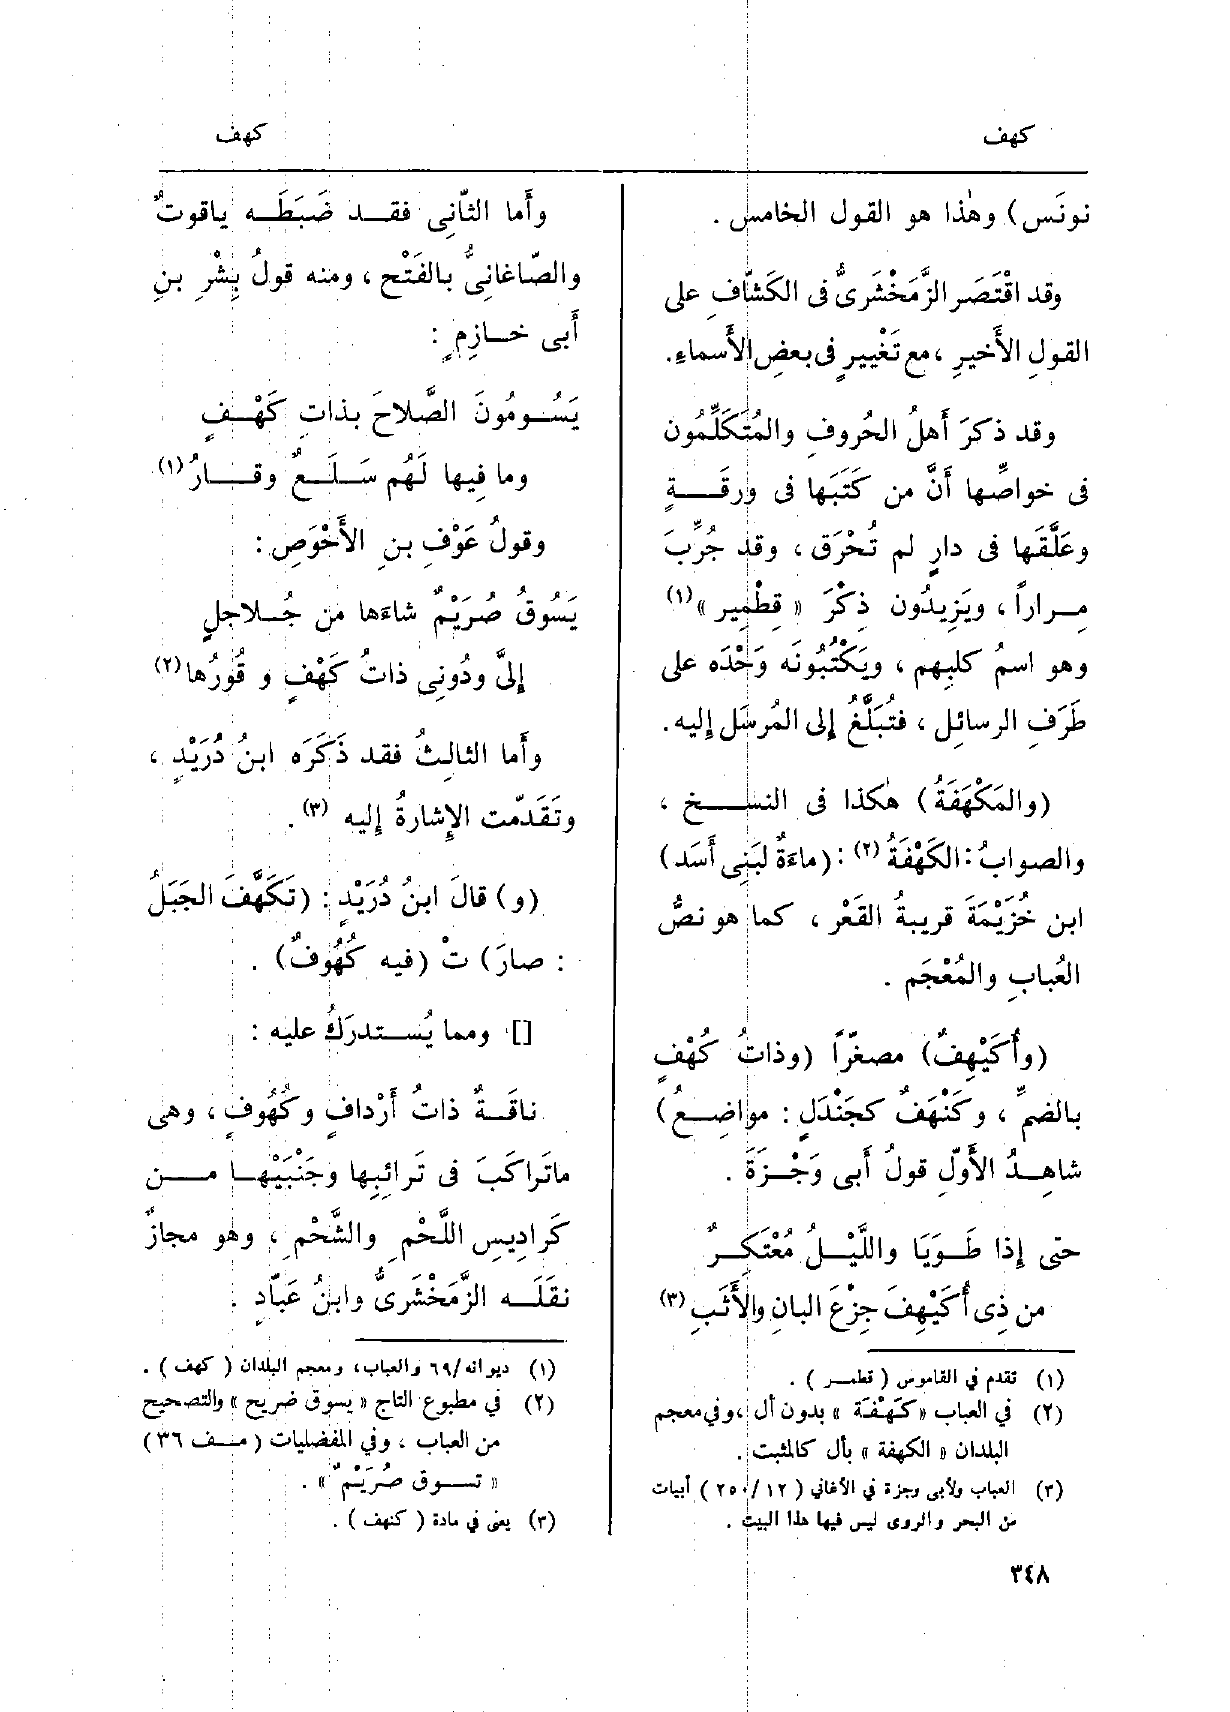 كهف
كهف
نونَس) وهٰذا هو القول الخامس .
وقد اقْتَصَر الزَّمَخْشَرىُّ فى الكَشّافِ على
القولِ الأَخيرِ ، مع تَغْييرٍ فى بعضِ الأَسماءِ.
وقد ذكرَ أَهلُ الحُروفِ والمُتَكَلِّمُون
فى خواصِّها أَنَّ من كَتَبَها فى ورقَةٍ
وعَلَّقَها فى دارٍ لم تُحْرَق ، وقد جُرِّبَ
مِراراً ، ويَزِيدُون ذِكْرَ « قِطْمِير » (١)
وهو اسمُ كلبِهم ، ويَكْتُبُونَه وَحْدَه على
طَرَفِ الرسائِل ، فتُبَلَّغُ إِلى المُرسَل إِليه.
(والمَكْهَفَةُ) هٰكذا فى النســخ ،
والصوابُ: الكَهْفَةُ (٢) : (ماءَةٌ لبَنِى أَسَد)
ابن خُزَيْمَةَ قريبةُ القَعْر ، كما هو نصُّ
العُبابِ والمُعْجَم .
(وأُكَيْهِفٌ) مصغَّراً (وذاتُ كُهْفٍ
بالضمِّ ، وكَنْهَفٌ كجَنْدَلٍ : مواضِعُ)
شاهِدُ الأَوّلِ قولُ أَبى وَجْزَةَ .
حتى إِذا طَوَيَا واللَّيْلُ مُعْتَكِرٌ
من ذِى أُكَيْهِفَ جِزْعَ البانِ والأَثَبِ (٣)
(١) تقدم في القاموس ( قطمر ) .
(٢) في العباب «كَهْفَة » بدون أل ، وفي معجم
البلدان « الكهفة » بأل كالمثبت .
(٣) العباب ولأبى وجزة في الأغاني ( ١٢ / ٢٥٠ ) أبيات
من البحر والروى ليس فيها هذا البيت .
٣٤٨
وأَما الثّانِى فقد ضَبَطَه ياقوتٌ
والصّاغانِىُّ بالفَتْح ، ومنه قولُ بِشْرِ بنِ
أَبى خازِمٍ :
يَسُومُونَ الصَّلاحَ بذاتِ كَهْفٍ
وما فِيها لَهُم سَلَعٌ وقارُ (١)
وقولُ عَوْفِ بنِ الأَحْوَصِ :
يَسُوقُ صُرَيْمٌ شاءَها من جُلاجِلٍ
إِلىَّ ودُونِى ذاتُ كَهْفٍ و قُورُها (٢)
وأَما الثالثُ فقد ذَكَرَه ابنُ دُرَيْدٍ ،
وتَقَدّمت الإِشارةُ إِليه (٣) .
(و) قالَ ابنُ دُرَيْدٍ : (تَكَهَّفَ الجَبَلُ
: صارَ) تْ (فيه كُهُوفٌ) .
[] ومما يُستدرَكُ عليه :
ناقَةٌ ذاتُ أَرْدافٍ وكُهُوفٍ ، وهى
ماتَراكَبَ فى تَرائِبِها وجَنْبَيْها مـن
كَرادِيسِ اللَّحْمِ والشَّحْمِ ، وهو مجازٌ
نقَلَه الزَّمَخْشَرىُّ وابنُ عَبّادٍ .
(١) ديوانه/٦٩ والعباب، ومعجم البلدان ( كهف ) .
(٢) في مطبوع التاج « يسوق ضريح » والتصحيح
من العباب ، وفي المفضليات ( مف ٣٦ )
« تسوق صُرَيْمٌ » .
(٣) يعنى في مادة ( كنهف ) .